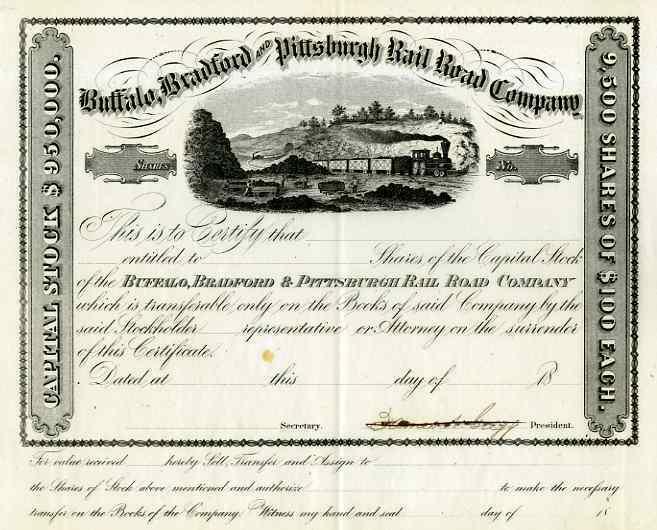 Buffalo, Bradford AND Pittsburgh Rail Road Company
CAPITAL STOCK $ 950,000.
9,500 SHARES OF $100 EACH.
SHARES
No.
This is to Certify that
entitled to Shares of the Capital Stock
of the BUFFALO, BRADFORD & PITTSBURGH RAIL ROAD COMPANY
which is transferable only on the Books of said Company by the
said Stockholder representative or Attorney on the surrender
of this Certificate.
Dated at this day of 18
Secretary. President.
For value received hereby Sell, Transfer and Assign to
the Shares of Stock above mentioned and authorize to make the necessary
transfer on the Books of the Company. Witness my hand and seal day of 18